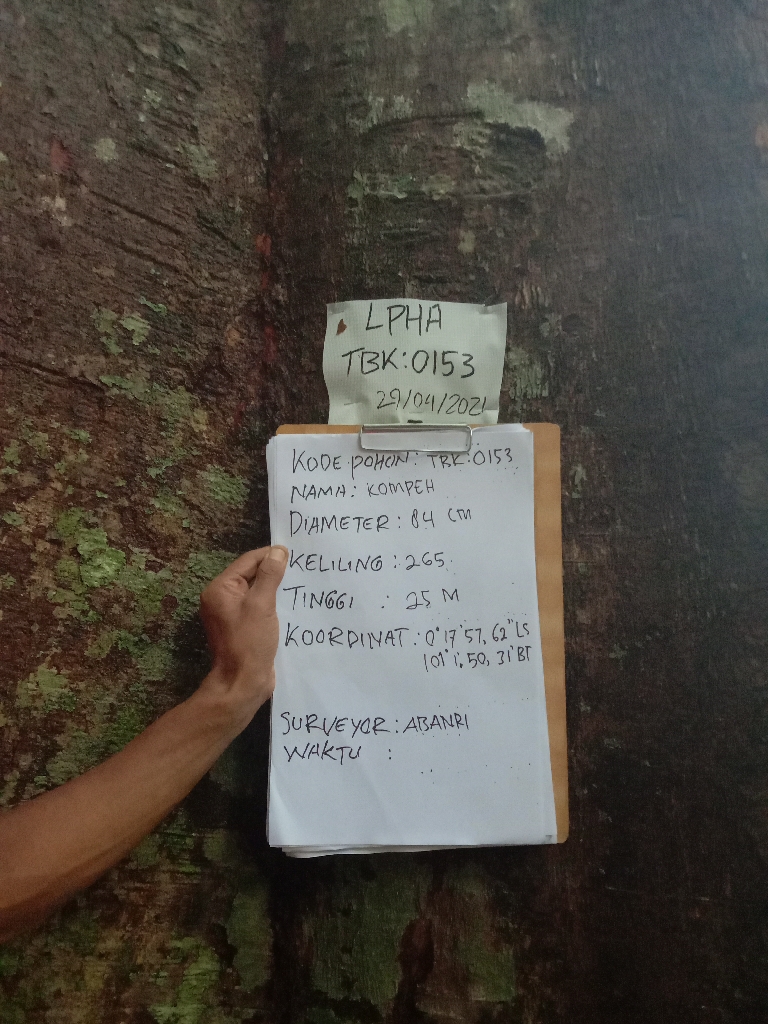 LPHA
TBK:0153
29/04/2021
KODE POHON: TBK:0153
NAMA: KOMPEH
DIAMETER: 84 CM
KELILING: 265
TINGGI : 25 M
KOORDINAT: 0°17'57,62"LS
101°1'50,31'BT
SURVEYOR: ABANRI
WAKTU :